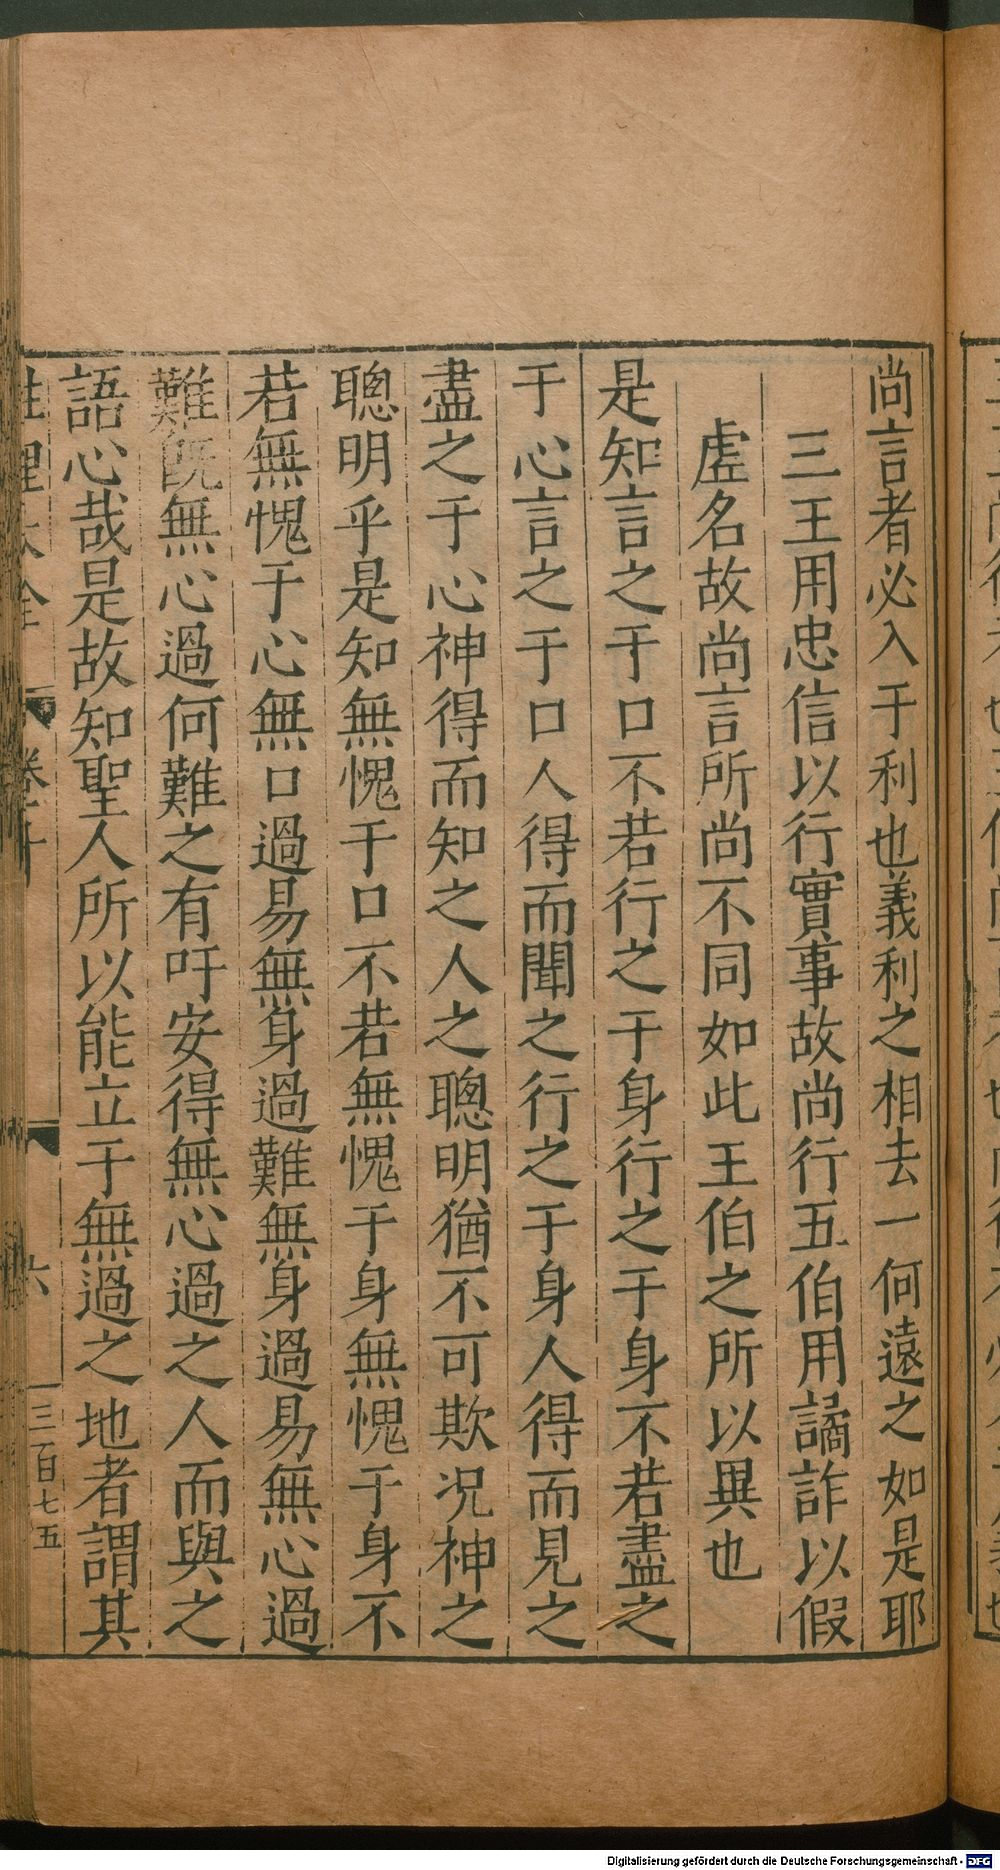 尚言者必入于利也義利之相去一何遠之如是耶
三王用忠信以行實事故尚行五伯用譎詐以假
虛名故尚言所尚不同如此王伯之所以異也
是知言之于口不若行之于身行之于身不若盡之
于心言之于口人得而聞之行之于身人得而見之
盡之于心神得而知之人之聰明猶不可欺况神之
聰明乎是知無愧于口不若無愧于身無愧于身不
若無愧于心無口過易無身過難無身過易無心過
難旣無心過何難之有吁安得無心過之人而與之
語心哉是故知聖人所以能立于無過之地者謂其
性理大全 卷之十 六 三百七五
Digitalisierung gefördert durch die Deutsche Forschungsgemeinschaft - DFG